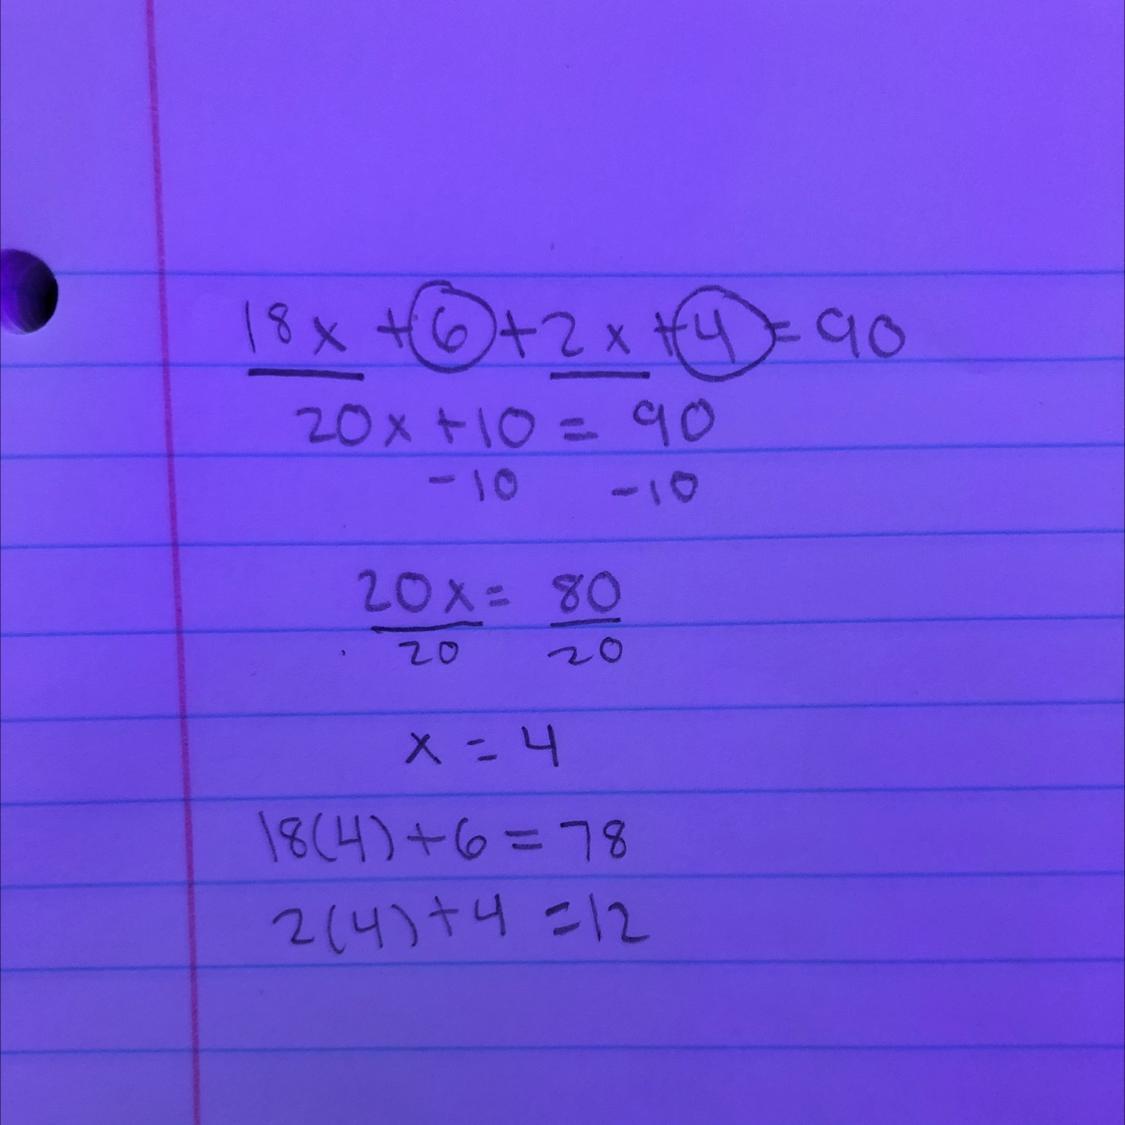 18x + 6 + 2x + 4 = 90
20x + 10 = 90
-10 -10
20x = 80
20 20
x = 4
18(4) + 6 = 78
2(4) + 4 = 12